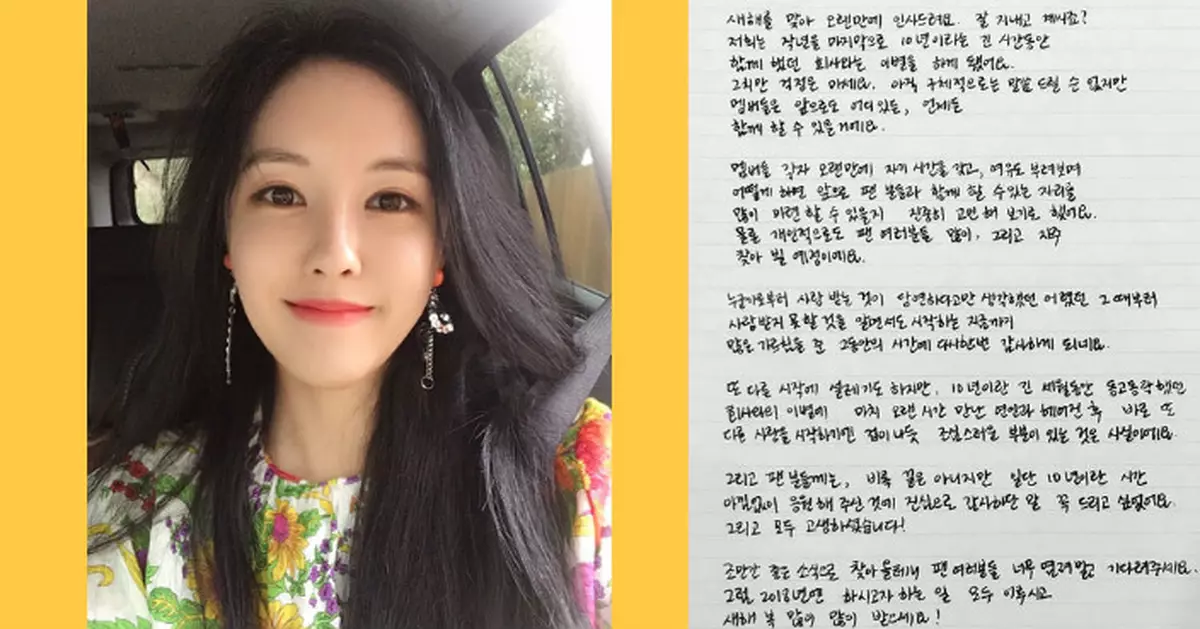 새해를 맞아 오랜만에 인사드려요. 잘 지내고 계씨죠?
저희는 작년을 마지막으로 10년이라는 긴 시간동안
함께 했던 회사와는 이별을 하게 됐어요.
그치만 걱정은 마세요. 아직 구체적으로는 말씀 드릴 순 없지만
멤버들은 앞으로도 어디있든, 언제든
함께 할 수 있을거에요.
멤버들 각자 오랜만에 자기 시간을 갖고, 여유도 부려보며
어떻게 하면 앞으로 팬 분들과 함께 할 수 있는 자리를
많이 마련 할 수 있을지 진중히 고민 해 보기로 했어요.
물론 개인적으로도 팬 여러분들 많이, 그리고 자주
찾아 뵐 예정이에요.
누군가로부터 사랑 받는 것이 당연하다고만 생각했던 어렸던 그때부터
사랑받지 못할 것을 알면서도 시작하는 지금까지
많은 가르침을 준 그동안의 시간에 다시한번 감사하게 되네요.
또 다른 시작에 설레기도 하지만, 10년이란 긴 세월동안 동고동락했던
회사와의 이별에 마치 오랜 시간 만난 연인과 헤어진 후 바로 또
다른 사랑을 시작하기엔 겁이 나듯 조심스러운 부분이 있는 것은 사실이에요.
그리고 팬 분들께는, 비록 끝은 아니지만 일단 10년이란 시간
아낌없이 응원해 주신 것에 진심으로 감사하단 말 꼭 드리고 싶었어요.
그리고 모두 고생하셨습니다!
조만간 좋은 소식으로 찾아올테니 팬 여러분들 너무 염려말고 기다려주세요.
그럼 2018년엔 하시고자 하는 일 모두 이루시고
새해 복 많이 많이 받으세요!